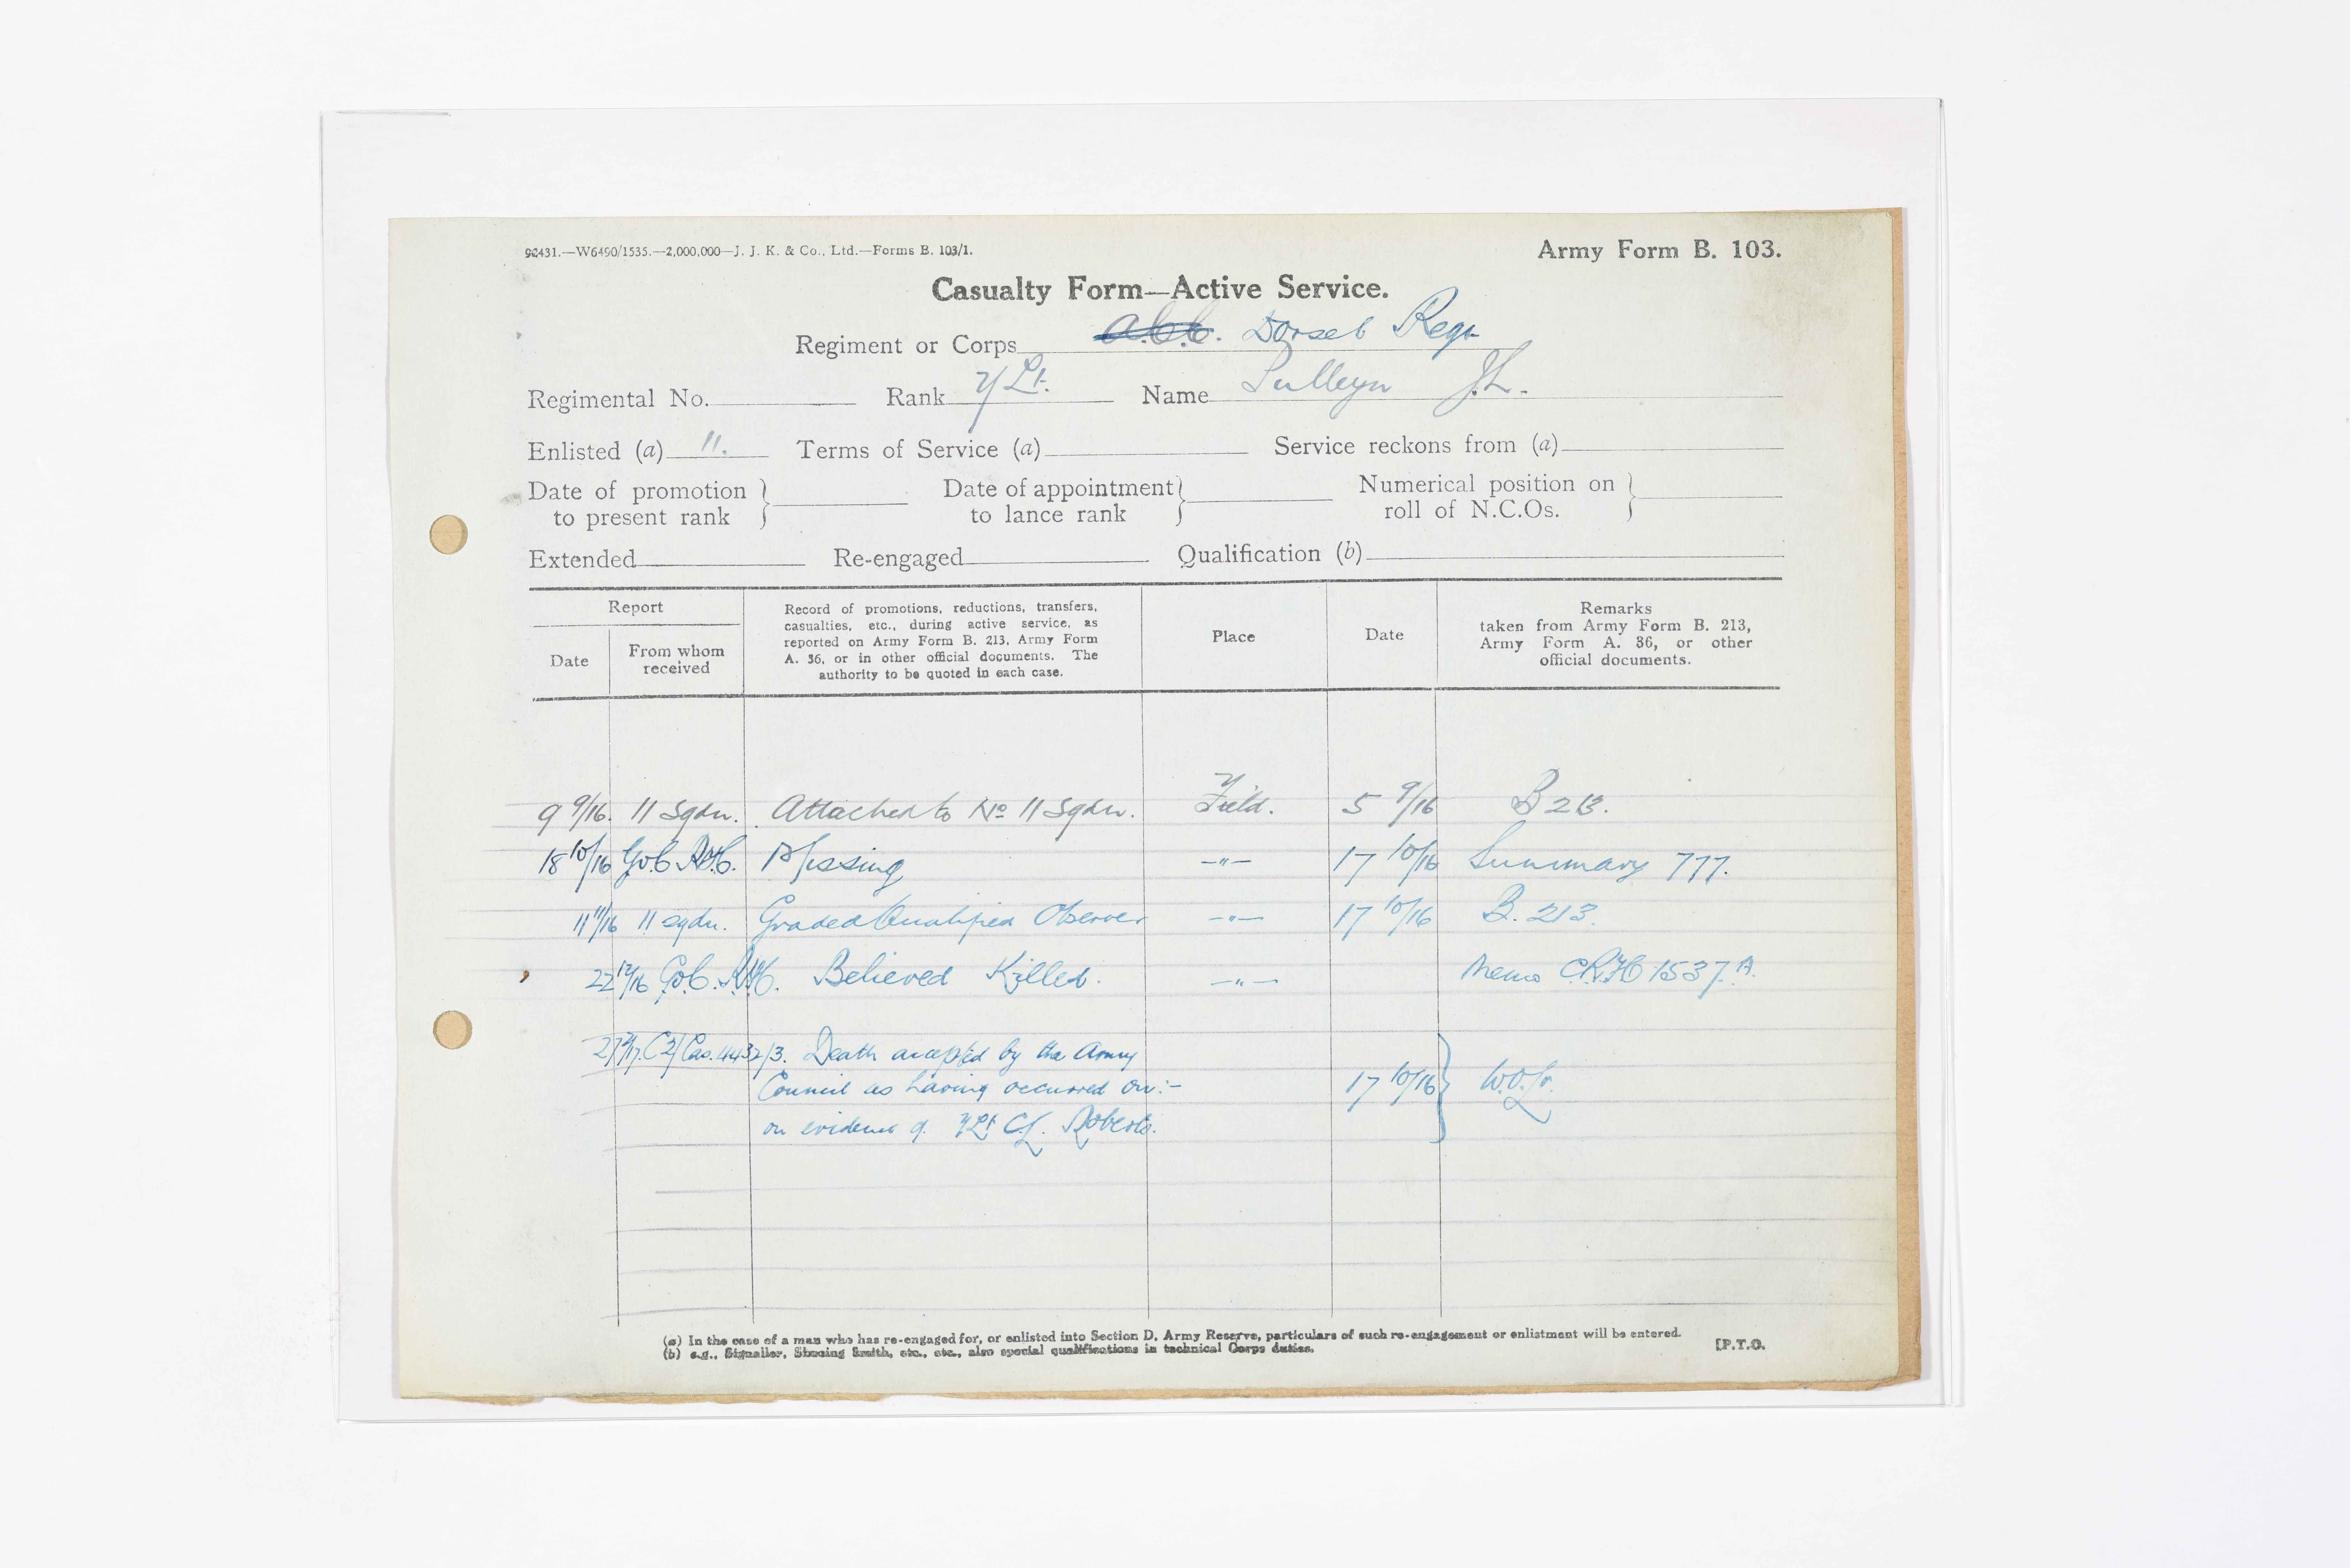 92431.—W6490/1535.—2,000,000—J. J. K. & Co., Ltd.—Forms B. 103/1.
Army Form B. 103.
Casualty Form—Active Service.
Regiment or Corps Dorset Regt
Regimental No. Rank 2/Lt. Name Pulleyn J.L.
Enlisted (a) 11. Terms of Service (a) Service reckons from (a)
Date of promotion to present rank } Date of appointment to lance rank } Numerical position on roll of N.C.Os. }
Extended Re-engaged Qualification (b)
Report
Date
From whom received
Record of promotions, reductions, transfers,
casualties, etc., during active service, as
reported on Army Form B. 213, Army Form
A. 36, or in other official documents. The
authority to be quoted in each case.
Place
Date
Remarks
taken from Army Form B. 213,
Army Form A. 36, or other
official documents.
9 9/16. 11 Sqdn. Attached to No 11 Sqdn. Field. 5 9/16 B 213.
18 10/16 GOC RFC. Missing —"— 17 10/16 Summary 777.
11 11/16 11 sqdn. Graded Qualified Observer —"— 17 10/16 B. 213.
22 12/16 G.O.C. RFC. Believed Killed. —"— Memo CRFC 1537.A.
27 2/17. C2/Cas. 4432/3. Death accepted by the Army
Council as having occurred on:- 17 10/16 } W.O.Lr.
on evidence of 2/Lt C.L. Roberts.
(a) In the case of a man who has re-engaged for, or enlisted into Section D, Army Reserve, particulars of such re-engagement or enlistment will be entered.
(b) e.g., Signaller, Shoeing Smith, etc., etc., also special qualifications in technical Corps duties.
[P.T.O.